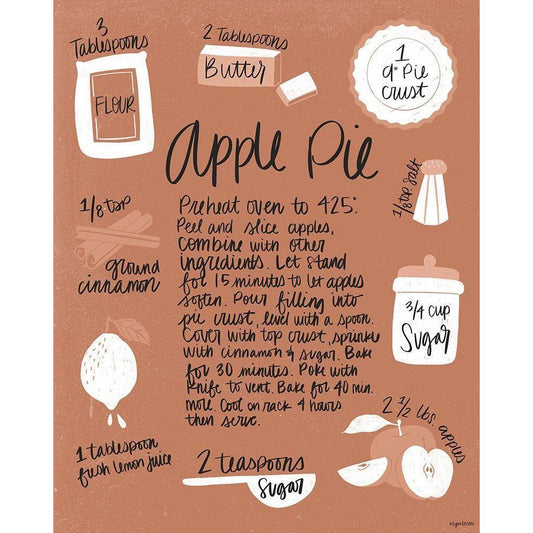 3
Tablespoons
FLOUR
2 Tablespoons
Butter
1
9" Pie
crust
Apple Pie
1/8 tsp
ground
cinnamon
1/8 tsp. salt
Preheat oven to 425°.
Peel and slice apples,
combine with other
ingredients. Let stand
for 15 minutes to let apples
soften. Pour filling into
pie crust, level with a spoon.
Cover with top crust, sprinkle
with cinnamon & sugar. Bake
for 30 minutes. Poke with
knife to vent. Bake for 40 min.
more. Cool on rack 4 hours
then serve.
3/4 cup
Sugar
1 tablespoon
fresh lemon juice
2 teaspoons
Sugar
2 1/2 lbs. apples